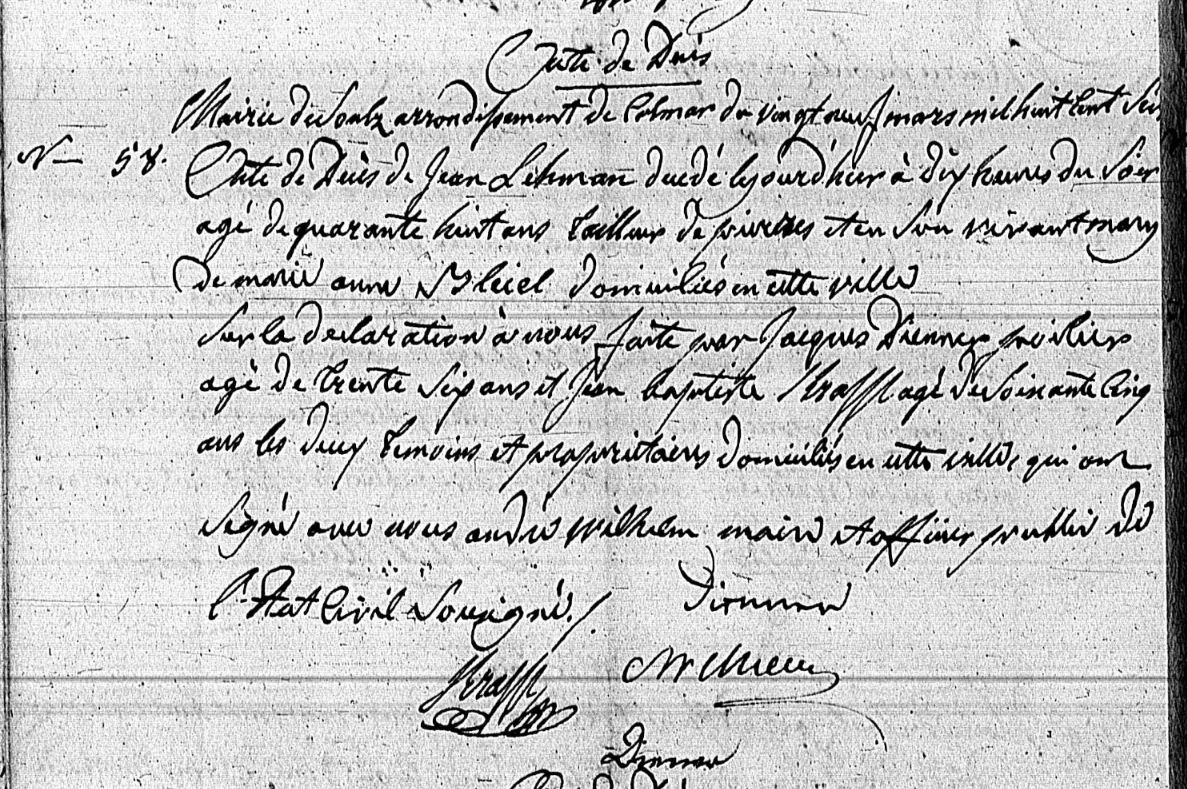 Acte de Décès
Mairie de Soultz arrondissement de Colmar du vingt neuf mars mil huit cent six
N° 58.
Acte de Décès de Jean Lehmann decedé le jourd'hui à dix heures du soir
agé de quarante huit ans tailleur de pierres et en son vivant mary
de marie anne domiciliés en cette ville
sur la declaration à nous faite par Jacques Dienner
agé de trente six ans et Jean baptiste Krafft agé de soixante cinq
ans les deux temoins et propriétaires domiciliés en cette ville, qui ont
signé avec nous andré Wilhelm maire et officier public de
l'Etat Civil Soussigné. / Dienner
Krafft Wilhelm
Dienner